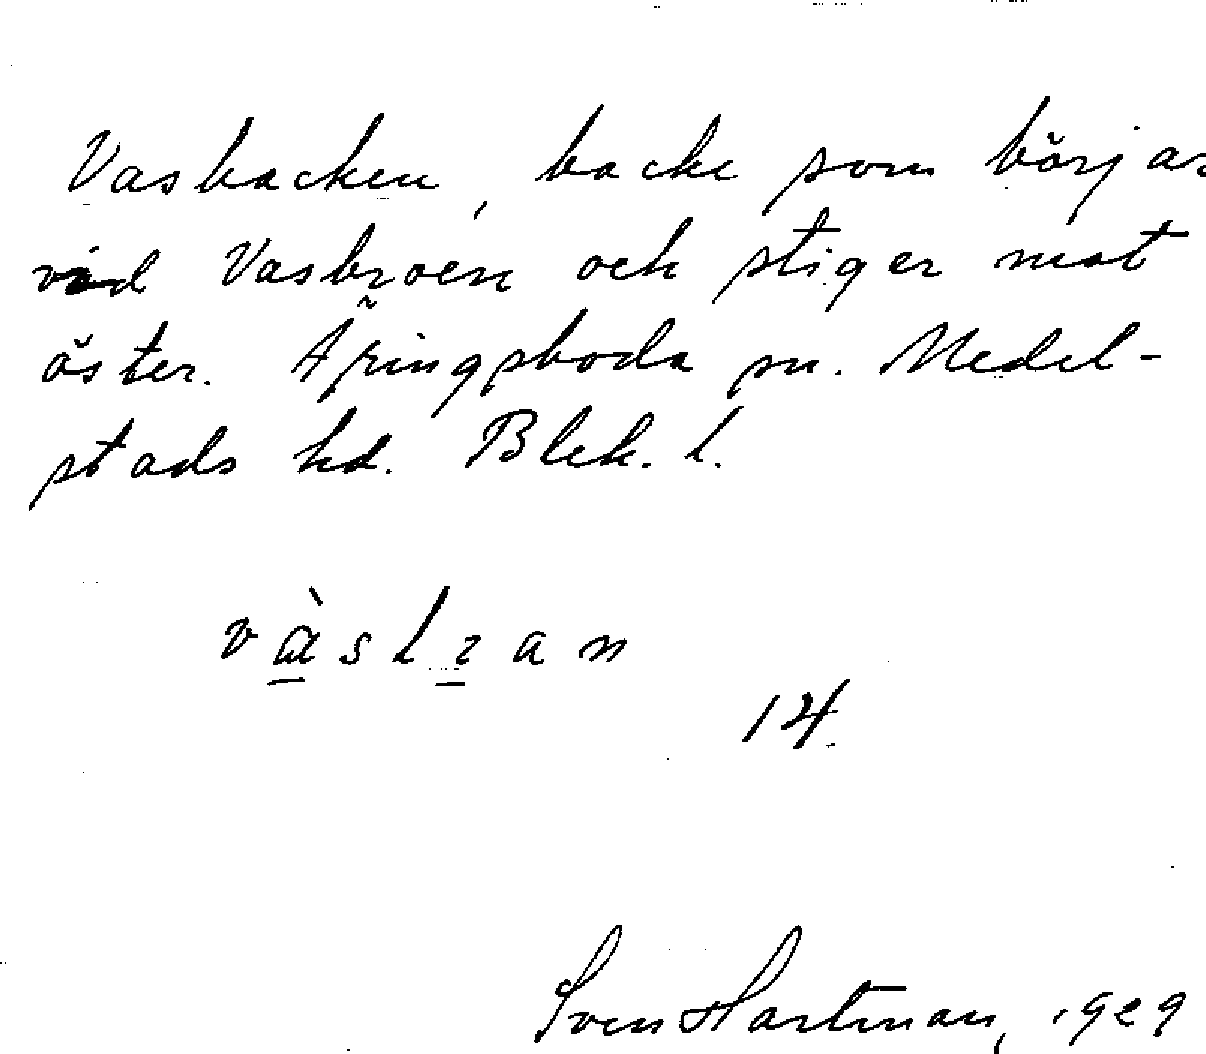 Vasbacken, backe som börjar
vid Vasbroen och stiger mot
öster. Åryingsboda sn. Medel-
stads hd. Blek. l.
14
Sven Hartman, 1929